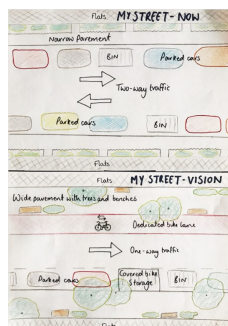 Flats MY STREET - NOW
Narrow pavement
BIN Parked cars
Two-way traffic
Parked cars BIN
Flats
Flats MY STREET - VISION
Wide pavement with trees and benches
Dedicated bike lane
One-way traffic
Parked cars Covered bike storage BIN
Flats